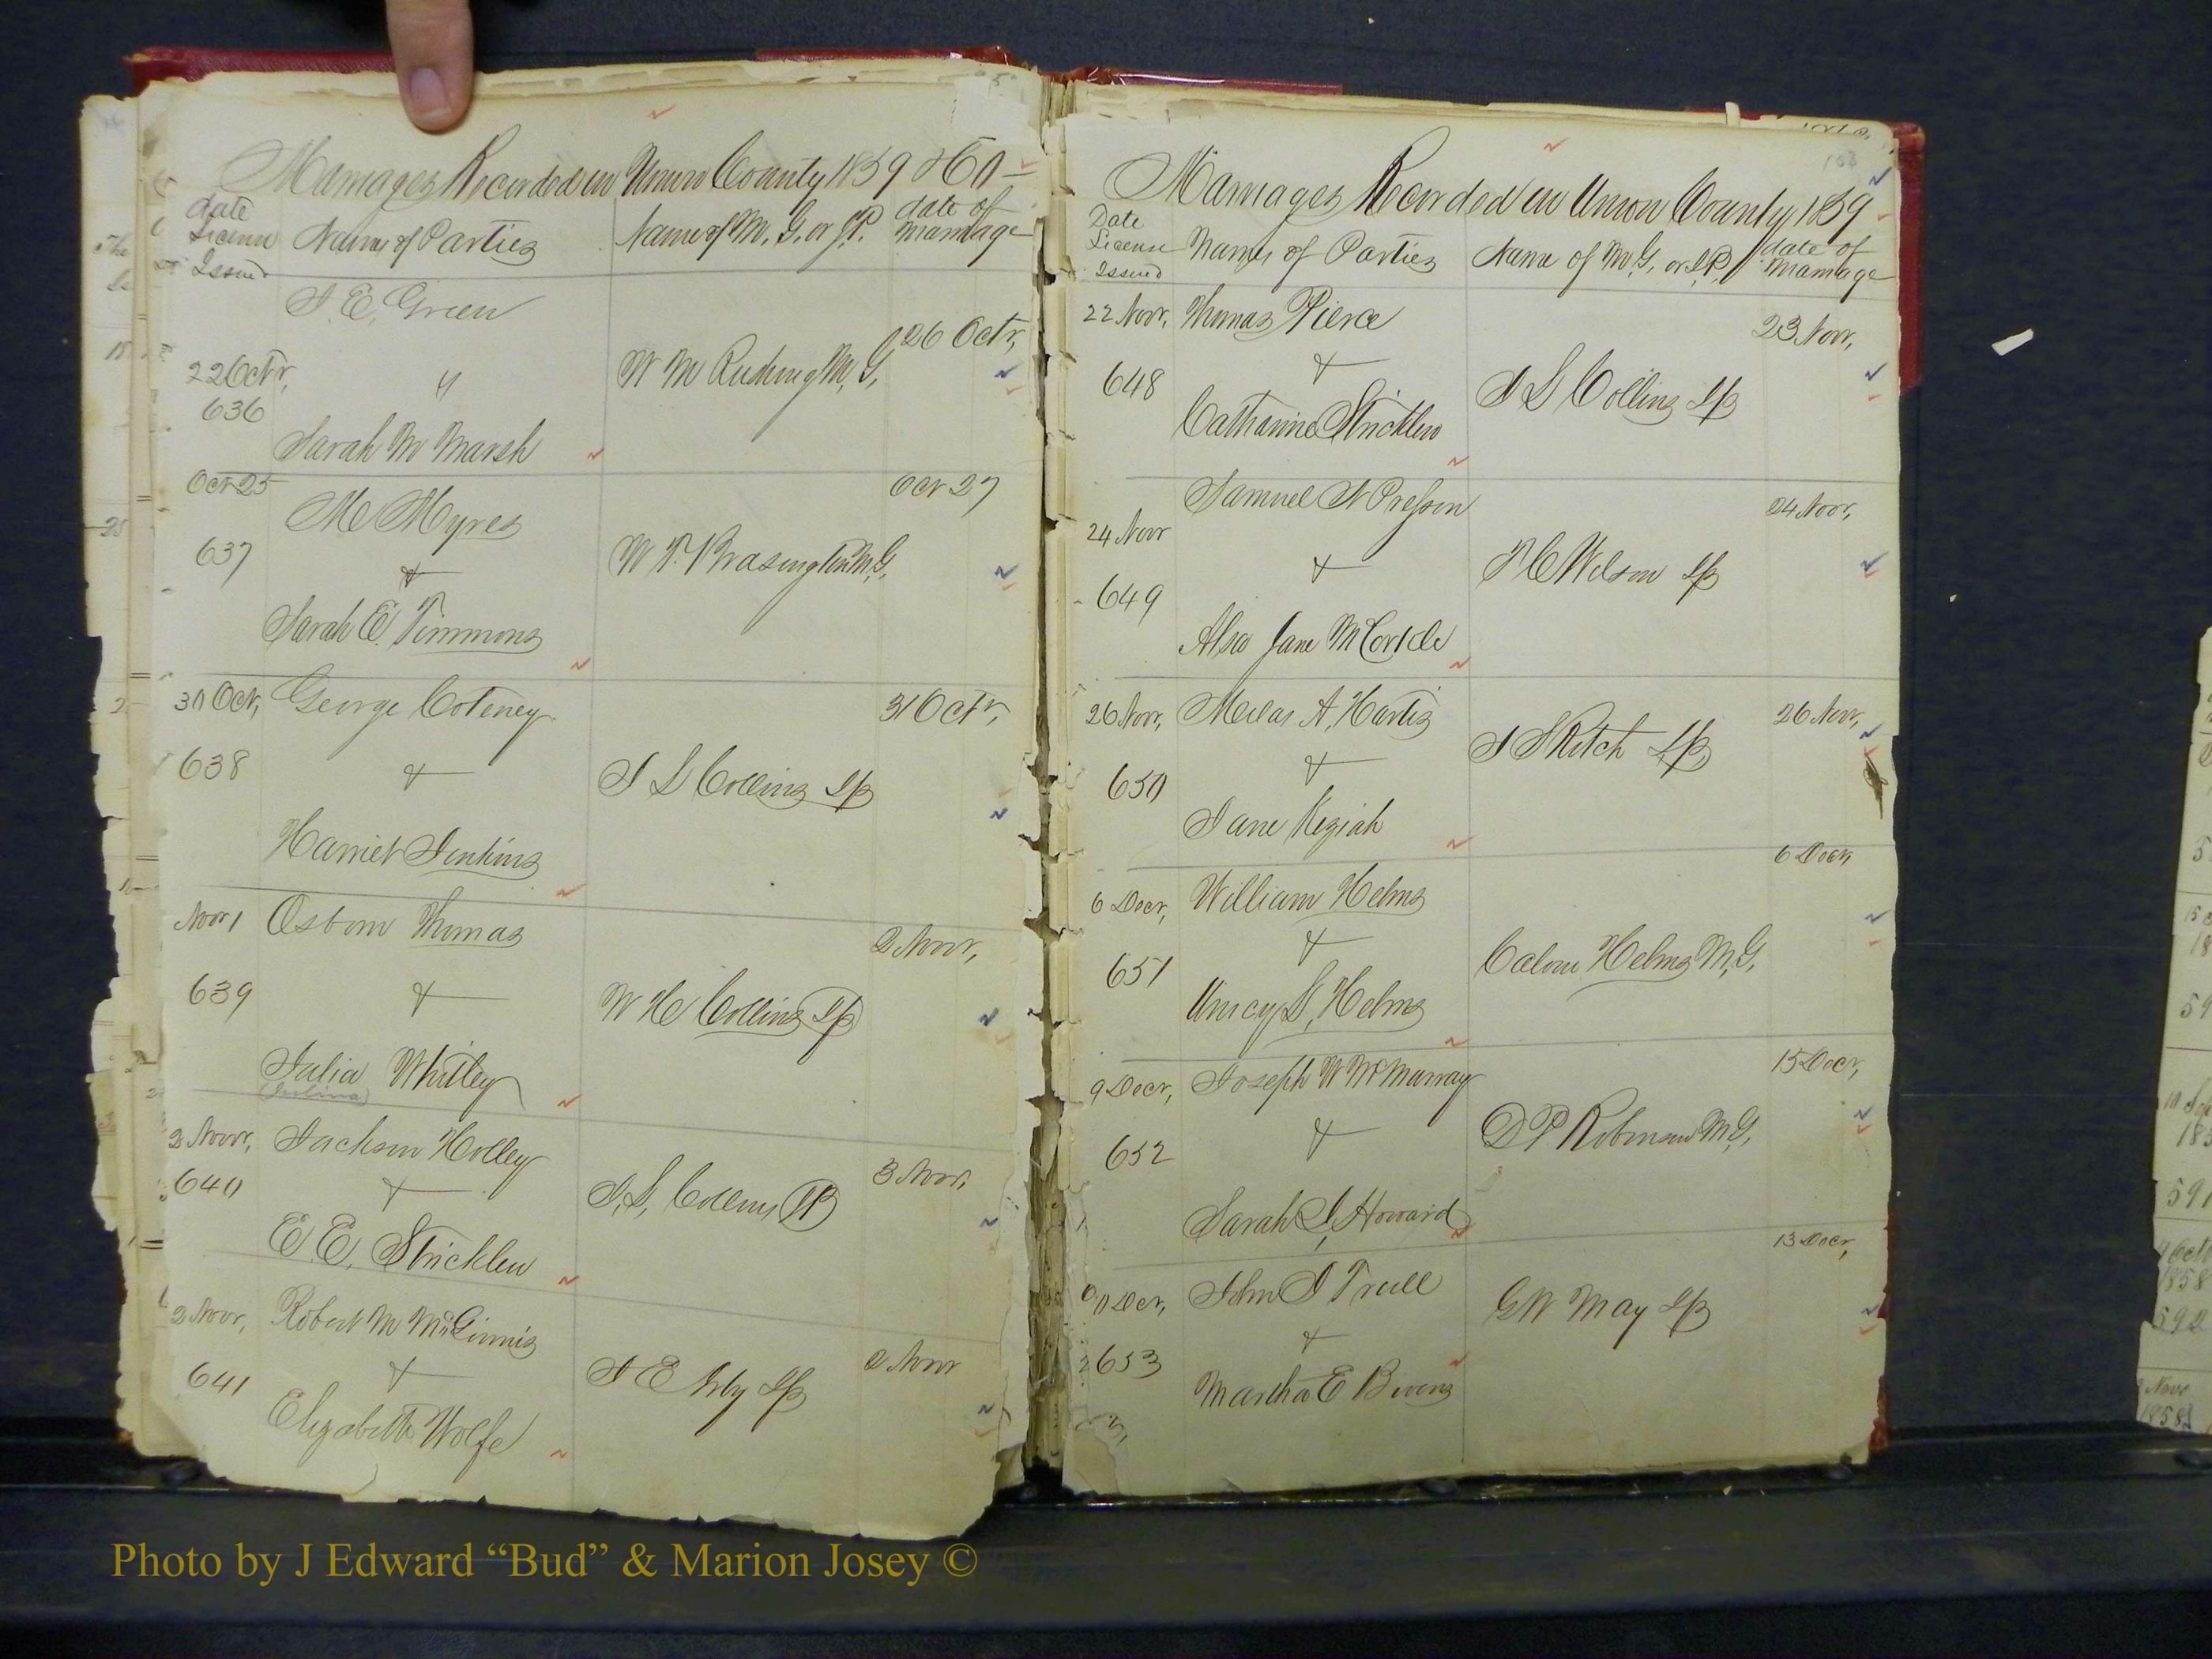 Marriages Recorded in Union County 1859 & 60
date License Issued
Name of Parties
Name of M. G. or J.P.
date of marriage
J. E. Green
22 Octr,
636
"
Sarah M Marsh
W M M, G,
26 Octr,
Oct 25
637
Mc Myres
&
Sarah E. Timmons
W T. Brasington M.G.
Oct 27
30 Oct,
638
George Coteney
&
Harriet Jenkins
J L Collins JP
31 Octr,
Novr 1
639
Osborn Thomas
&
Julia Whitley
(Julina)
W H Collins JP
2 Novr,
2 Novr,
640
Jackson Holley
&
E. E. Stricklen
J, L, Collins JP
3 Novr,
2 Novr,
641
Robert M McGinnis
&
Elizabeth Wolfe
J E Irby JP
2 Novr
Marriages Recorded in Union County 1859
Date License Issued
Names of Parties
Name of M.G. or J.P.
date of marriage
22 Novr,
648
Thomas Pierce
&
Catharine Stricklen
J L Collins JP
23 Novr,
24 Novr
649
Samuel N Presson
&
Jane McCorkle
H C Wilson JP
24 Novr,
26 Novr,
650
Milas A, Hartis
&
Jane Keziah
J S Ritch JP
26 Novr,
6 Decr,
651
William Helms
&
Unicy L, Helms
Calvin Helms M,G,
6 Decr
9 Decr,
652
Joseph W McMurray
&
Sarah J, Howard
D P Robinson M,G,
15 Decr,
10 Decr,
653
John J Trull
&
Martha E Bivens
G W May JP
13 Decr,
Photo by J Edward “Bud” & Marion Josey ©